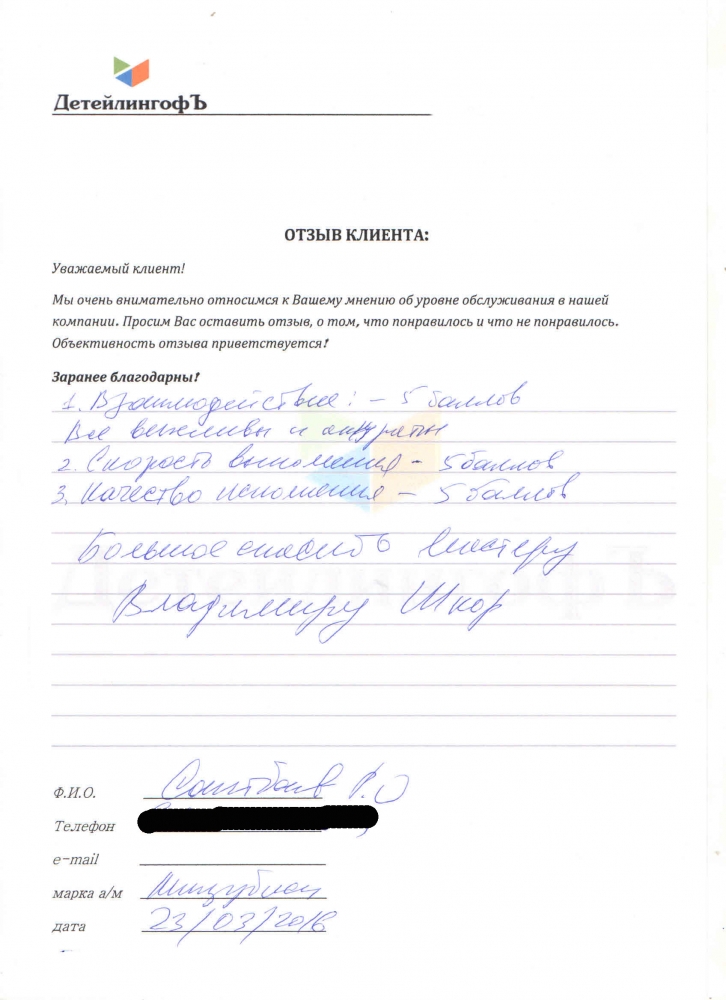 ДетейлингофЪ
ОТЗЫВ КЛИЕНТА:
Уважаемый клиент!
Мы очень внимательно относимся к Вашему мнению об уровне обслуживания в нашей
компании. Просим Вас оставить отзыв, о том, что понравилось и что не понравилось.
Объективность отзыва приветствуется!
Заранее благодарны!
1. Взаимодействие: – 5 баллов
Все вежливы и
2. Скорость выполнения – 5 баллов
3. Качество исполнения – 5 баллов
Большое спасибо мастеру
Владимиру Шкор
Ф.И.О.
Телефон
e-mail
марка а/м
дата 23/03/2016